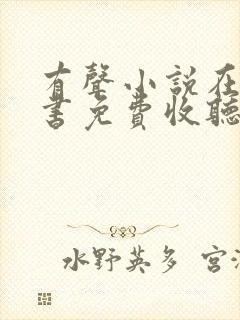 有聲小說在
書免費收聽
水野英多 宮